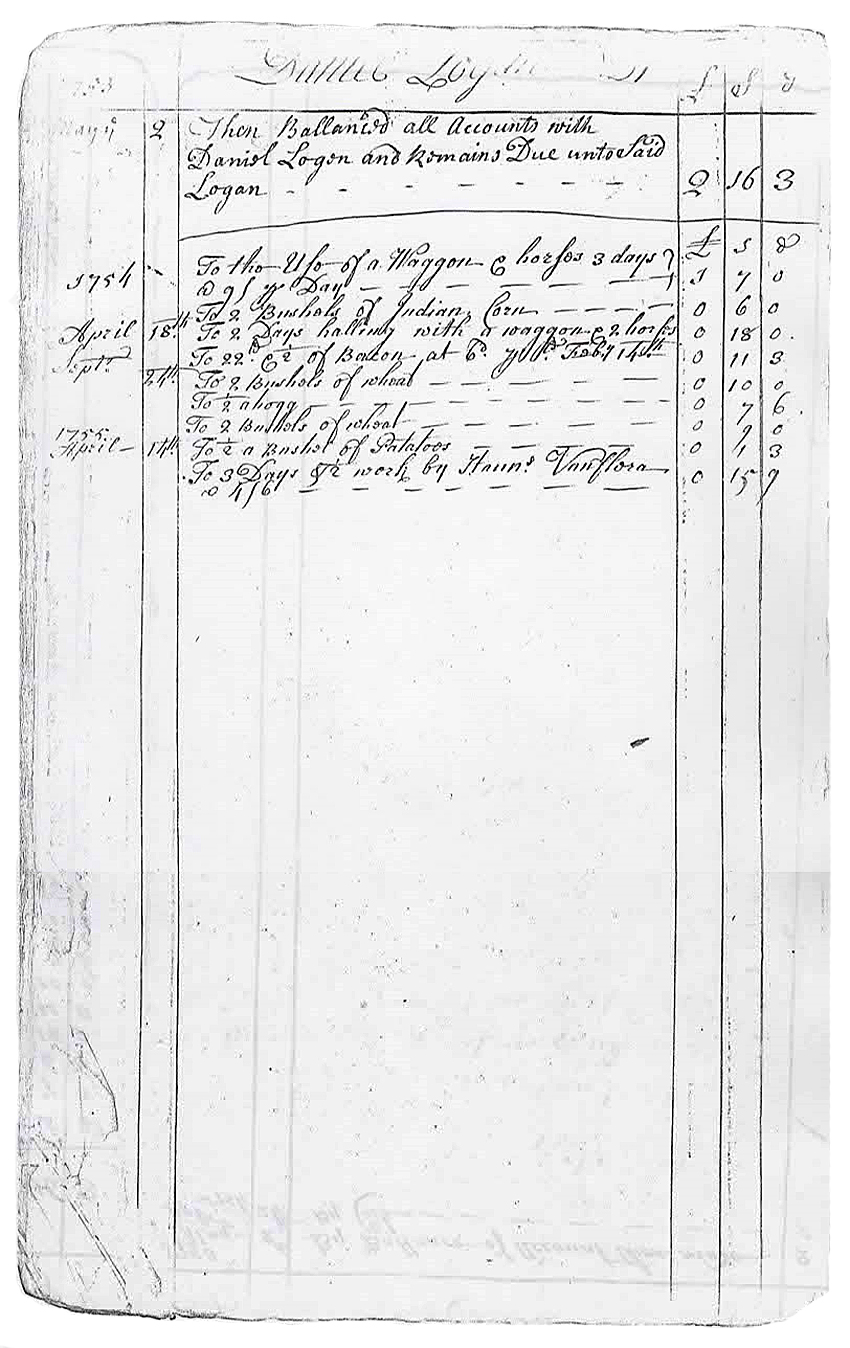 1753 Daniel Logan Dr £ S d
May ye 2 Then Ballanced all Accounts with
Daniel Logen and Remains Due unto Said
Logan - - - - - - - 2 16 3
£ s d
1754 To the Use of a Waggon & horses 3 days
@ 9s ye Day 1 7 0
To 2 Bushels of Indian Corn 0 6 0
April 18th To 2 Days halling with a waggon & 2 horses 0 18 0
Septr To 22 & ½ of Bacon at 6d Feby 14th 0 11 3
24th To 2 Bushels of wheat 0 10 0
To ½ a hogg 0 7 6
To 2 Bushels of wheat 0 9 0
1755
April 14th To ½ a Bushel of Patatoes 0 1 3
To 3 Days & ½ work by 0 15 9
@ 4/6